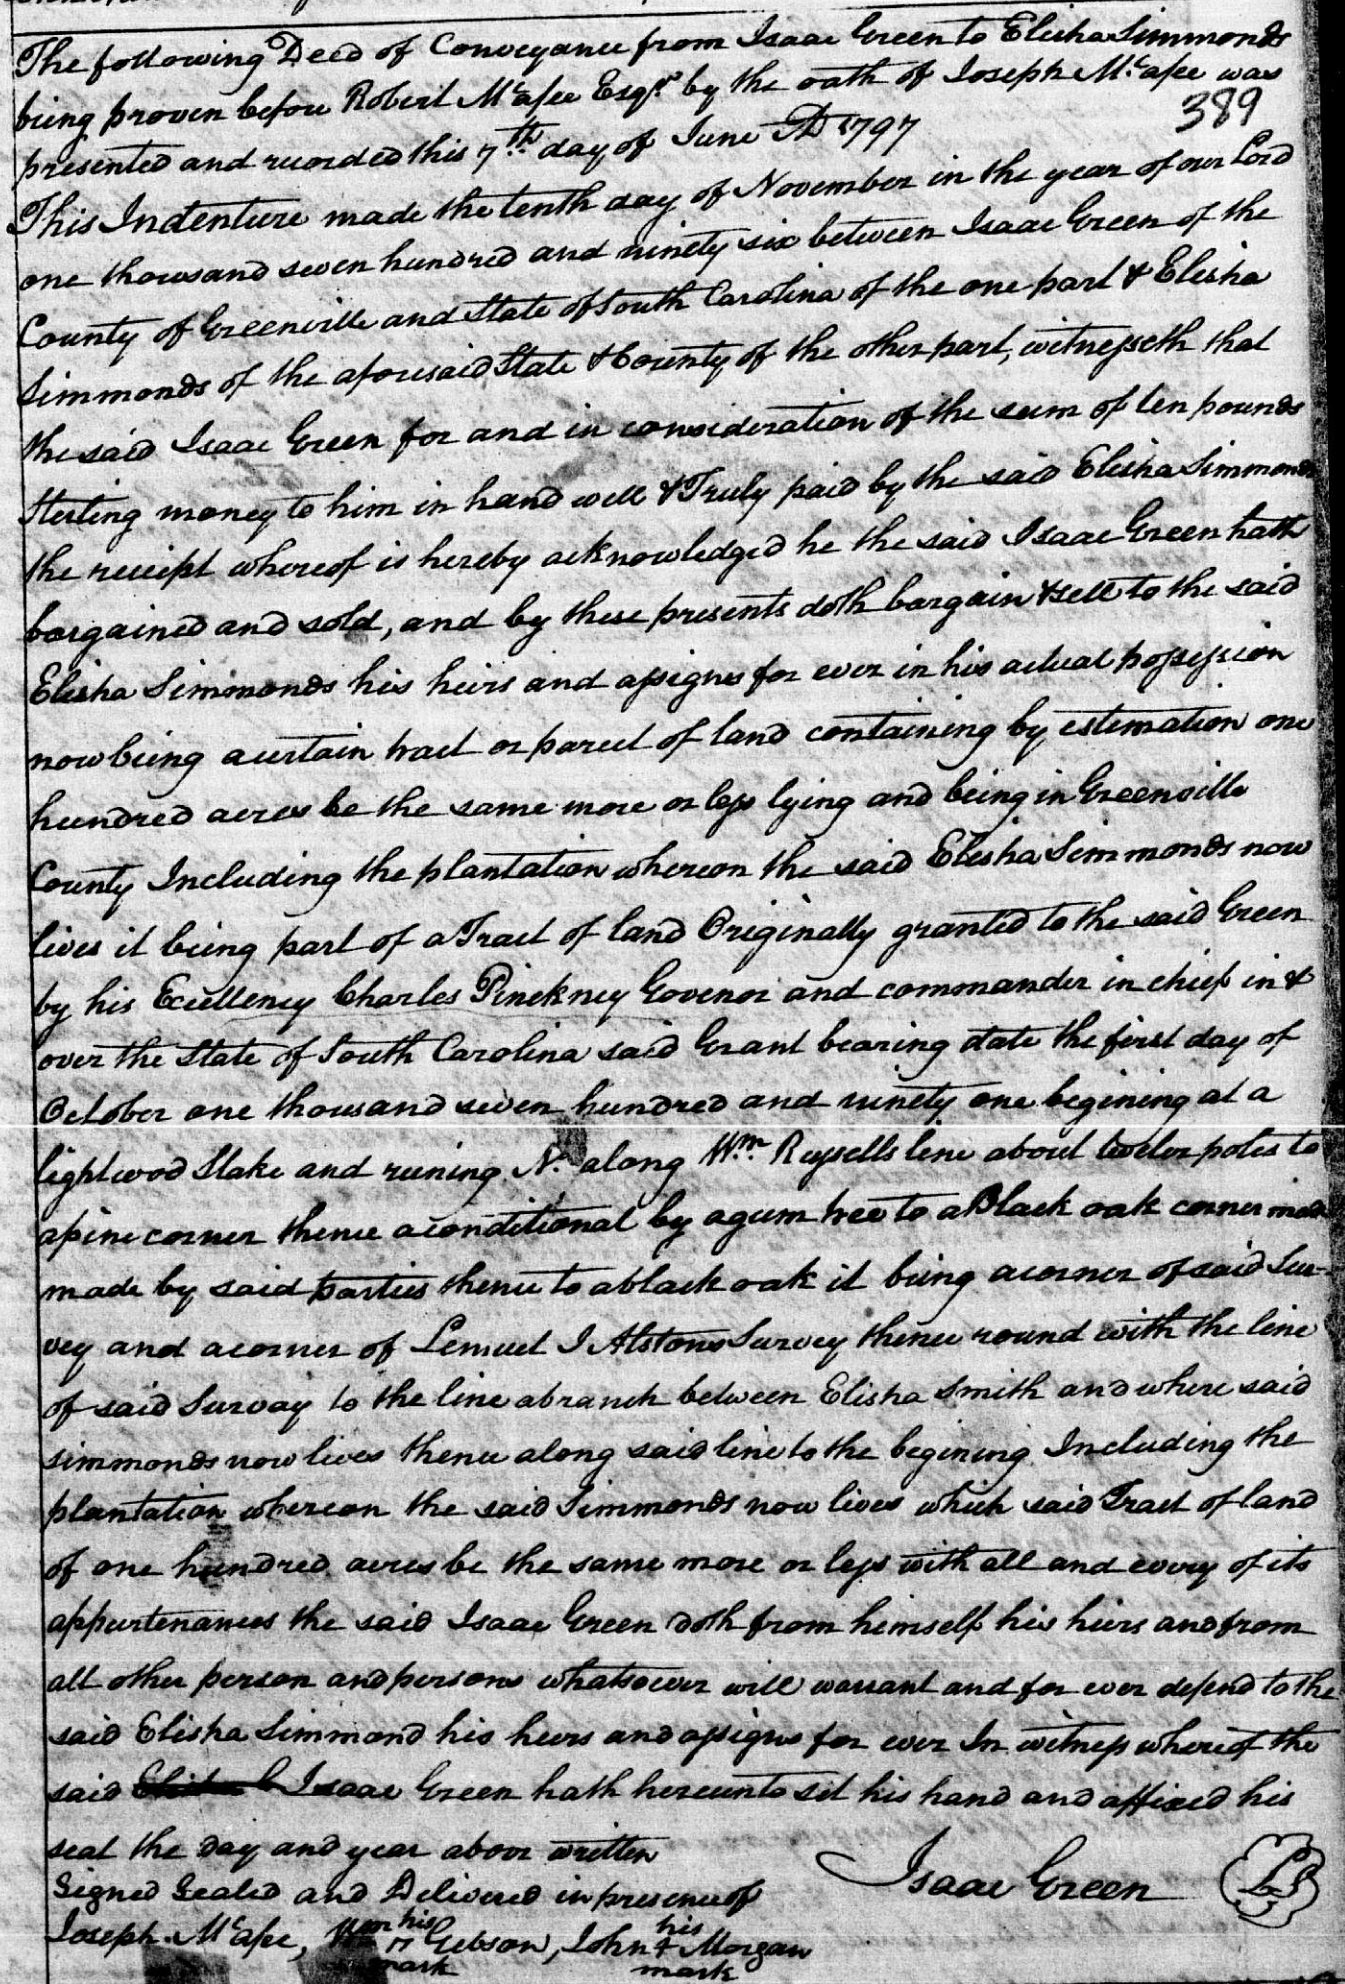 The following Deed of Conveyance from Isaac Green to Elisha Simmonds
being proven before Robert McAfee Esqr. by the oath of Joseph McAfee was
389
presented and recorded this 7th. day of June AD 1797
This Indenture made the tenth day of November in the year of our Lord
one thousand seven hundred and ninety six between Isaac Green of the
County of Greenville and State of South Carolina of the one part & Elisha
Simmonds of the aforesaid State & County of the other part, witnesseth that
the said Isaac Green for and in consideration of the sum of ten pounds
Sterling money to him in hand well & Truly paid by the said Elisha Simmonds
the receipt whereof is hereby acknowledged he the said Isaac Green hath
bargained and sold, and by these presents doth bargain & sell to the said
Elisha Simmonds his heirs and assigns for ever in his actual possession
now being a certain tract or parcel of land containing by estimation one
hundred acres be the same more or less lying and being in Greenville
County Including the plantation whereon the said Elisha Simmonds now
lives it being part of a Tract of land Originally granted to the said Green
by his Excellency Charles Pinckney Govenor and commander in chief in &
over the State of South Carolina said Grant bearing date the first day of
October one thousand seven hundred and ninety one begining at a
lightwood Stake and runing N. along Wm. Russells line about twelve poles to
a pine corner thence a conditional by a gum tree to a Black oak corner made
made by said parties thence to a black oak it being a corner of said Sur-
vey and a corner of Lemuel J Alstons Survey thence round with the line
of said Survay to the line a branch between Elisha Smith and where said
simmonds now lives thence along said line to the begining Including the
plantation whereon the said Simmonds now lives which said Tract of land
of one hundred acres be the same more or less with all and every of its
appurtenances the said Isaac Green doth from himself his heirs and from
all other person and persons whatsoever will warrant and for ever defend to the
said Elisha Simmond his heirs and assigns for ever In witness whereof the
said Isaac Green hath hereunto set his hand and affixed his
seal the day and year above written
Signed Sealed and Delivered in presence of Isaac Green LS
Joseph McAfee, Wm his Gibson, John his + Morgan
mark mark